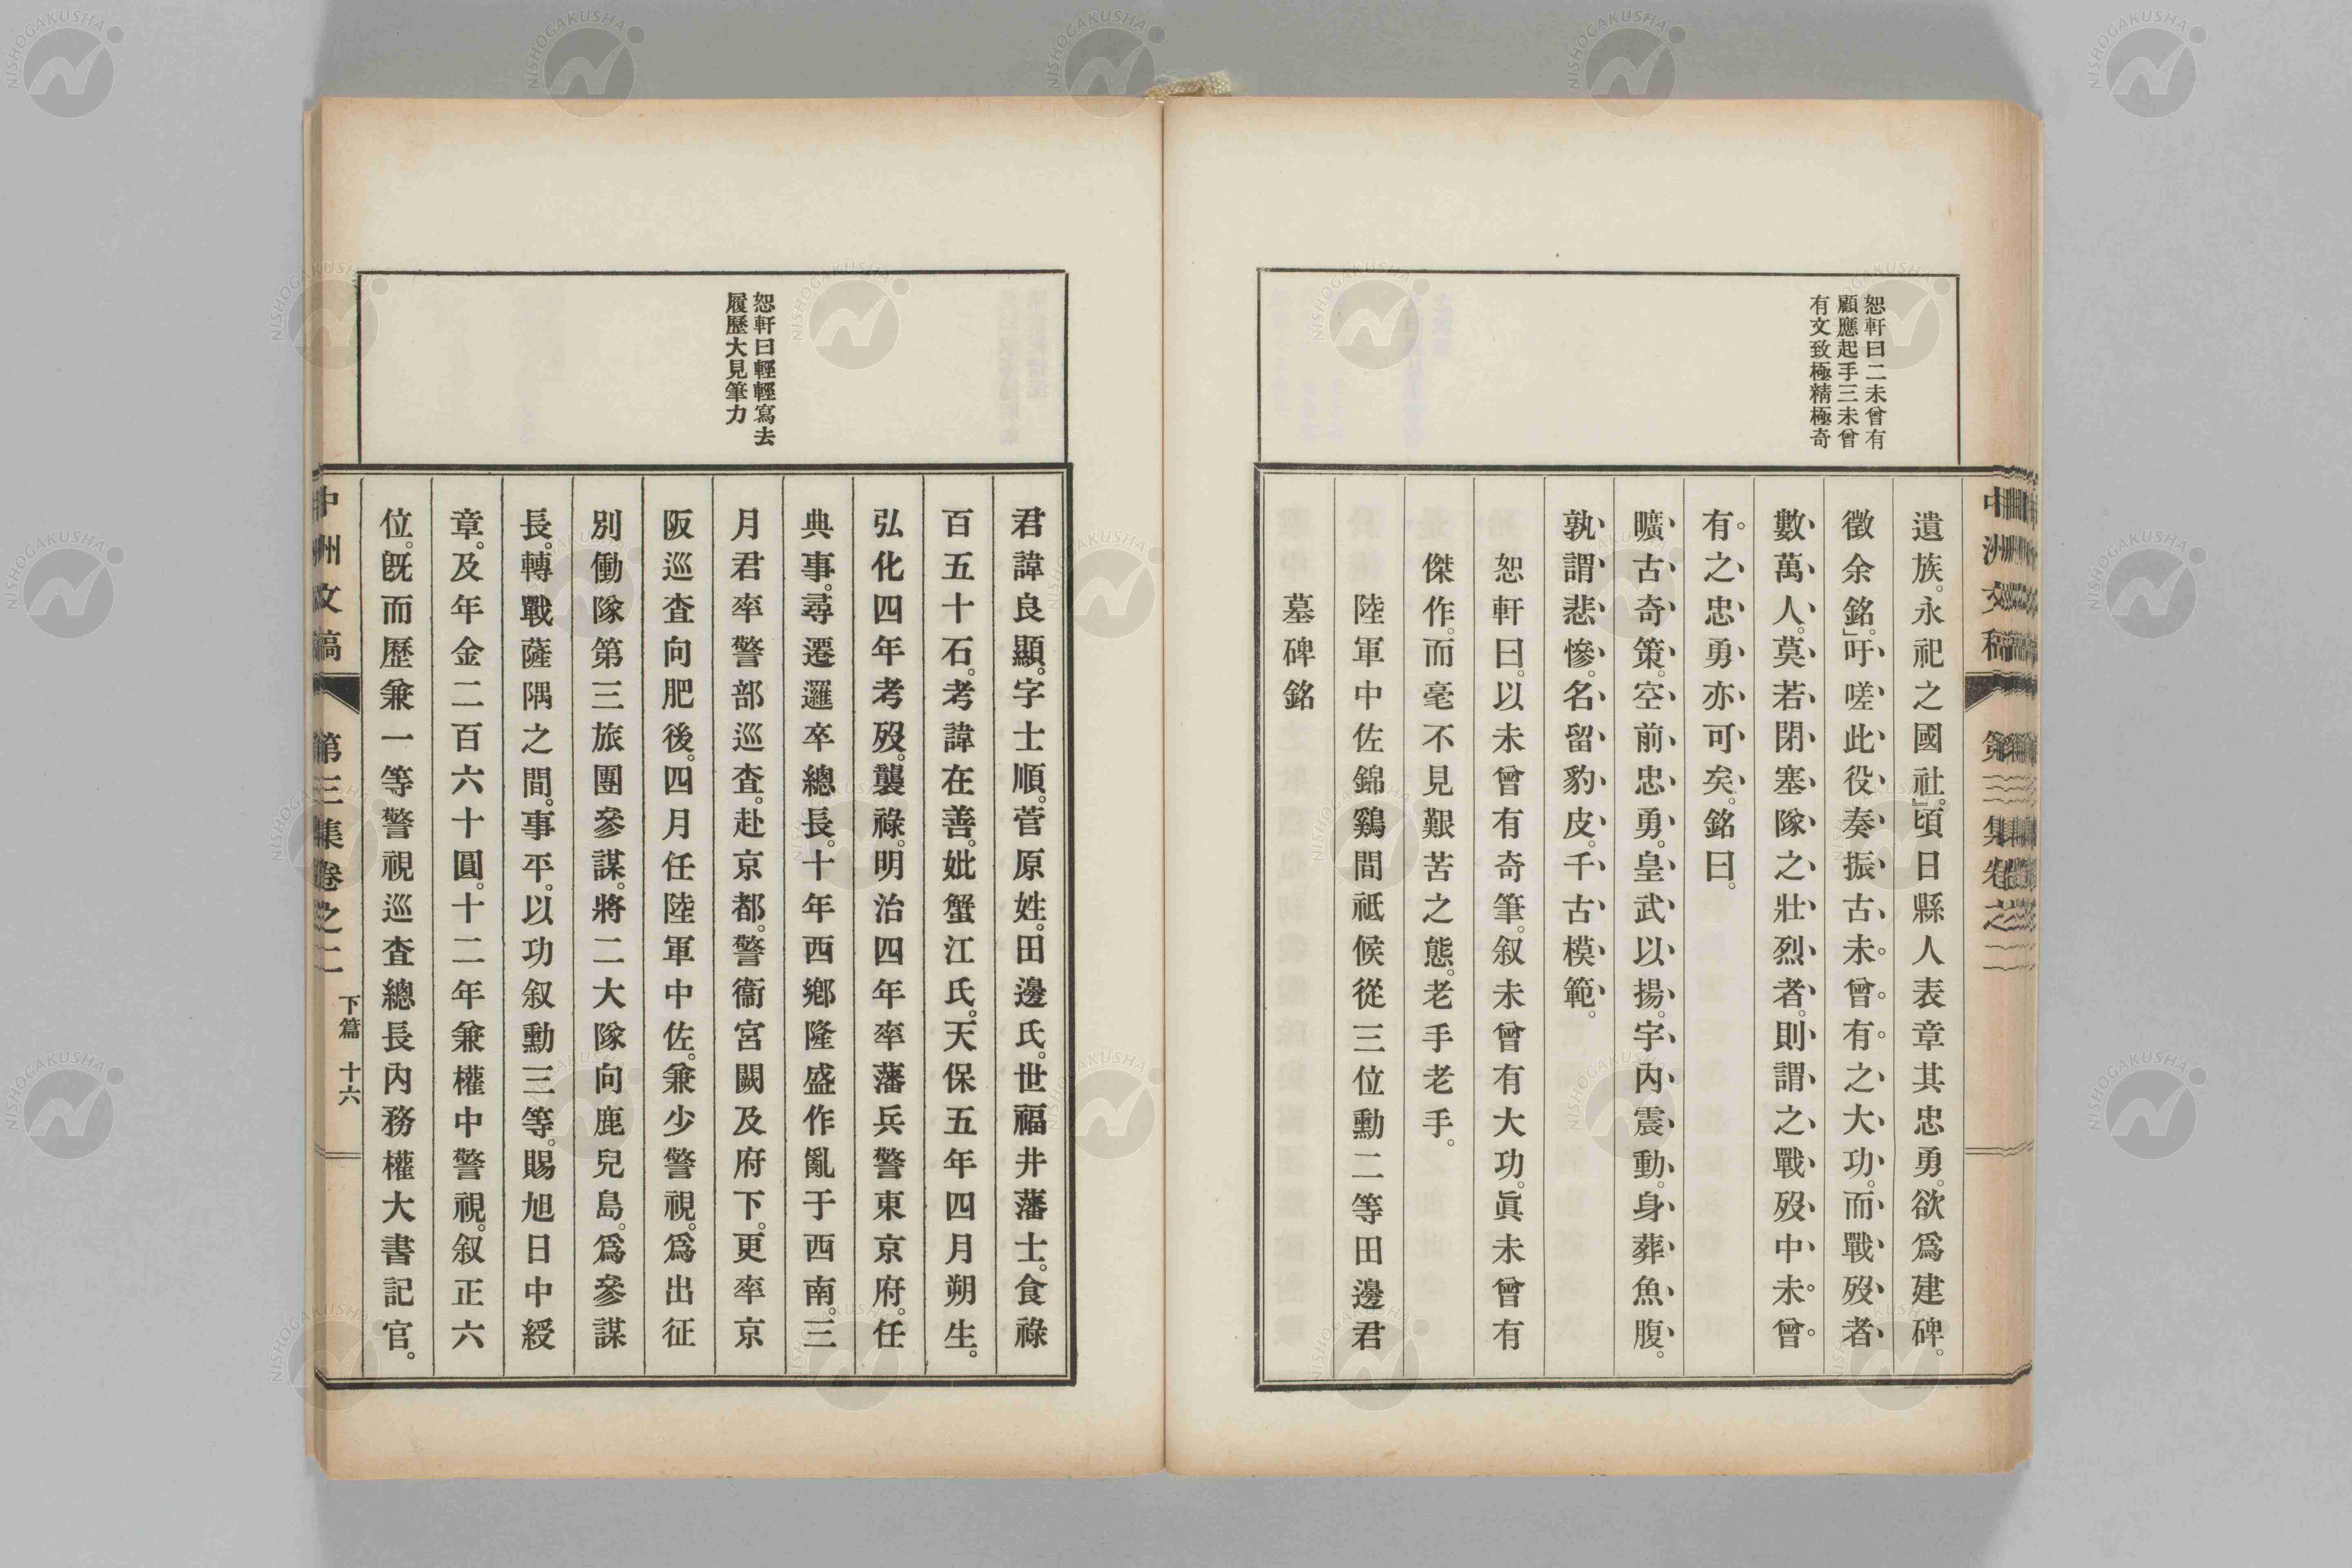 恕軒曰二未曾有
顧應起手三未曾
有文致極精極奇
遺族。永祀之國社。」頃日縣人表章其忠勇。欲爲建碑。
徵余銘。」吁嗟此役奏振古未曾有之大功。而戰歿者
數萬人。莫若閉塞隊之壯烈者。則謂之戰歿中未曾
有之忠勇亦可矣。銘曰。
曠古奇策。空前忠勇。皇武以揚。宇內震動。身葬魚腹。
孰謂悲慘。名留豹皮。千古模範。
恕軒曰。以未曾有奇筆。叙未曾有大功。眞未曾有
傑作。而毫不見艱苦之態。老手老手。
陸軍中佐錦鷄間祗候從三位勳二等田邊君
墓碑銘
恕軒曰輕輕寫去
履歷大見筆力
君諱良顯。字士順。菅原姓。田邊氏。世福井藩士。食祿
百五十石。考諱在善。妣蟹江氏。天保五年四月朔生。
弘化四年考歿。襲祿。明治四年率藩兵警東京府。任
典事。尋遷邏卒總長。十年西鄕隆盛作亂于西南。三
月君率警部巡査。赴京都。警衞宮闕及府下。更率京
阪巡査向肥後。四月任陸軍中佐。兼少警視。爲出征
別働隊第三旅團參謀。將二大隊向鹿兒島。爲參謀
長。轉戰薩隅之間。事平。以功叙勳三等。賜旭日中綬
章。及年金二百六十圓。十二年兼權中警視。叙正六
位。旣而歷兼一等警視巡査總長內務權大書記官。
中洲文稿
第三集卷之二
下篇 十六